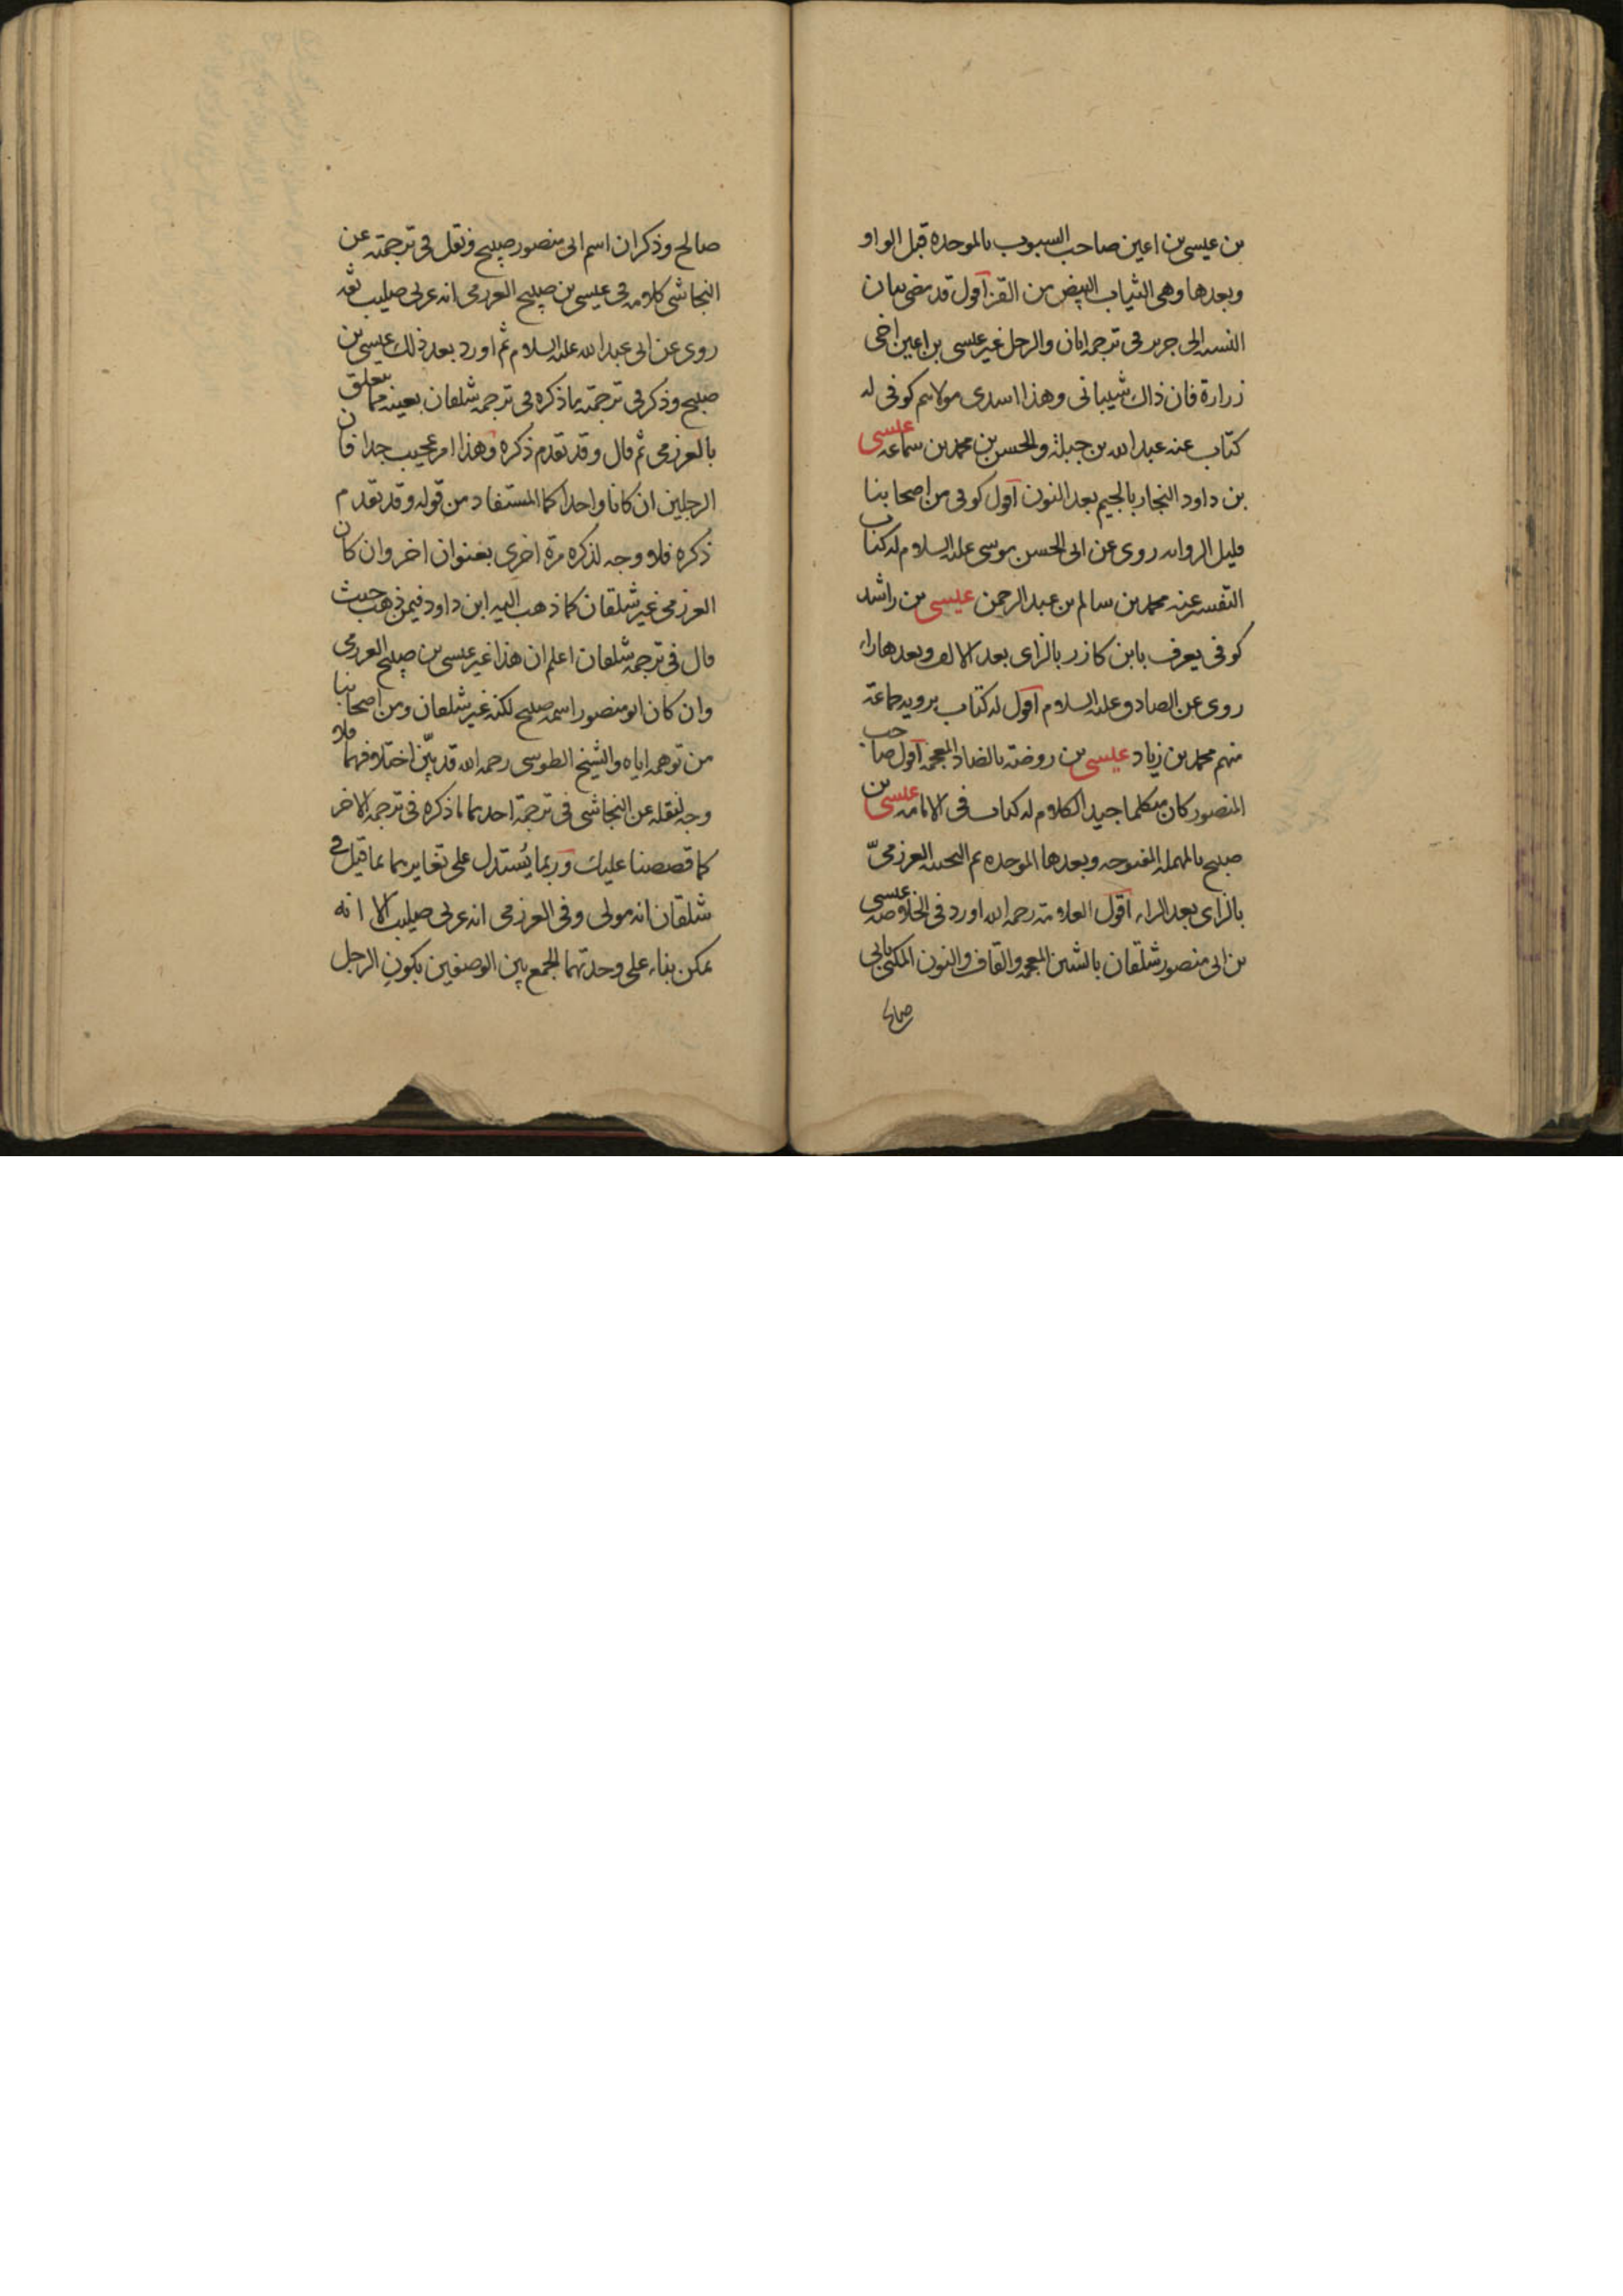 بن عيسى بن اعين صاحب السبوب بالموحدة قبل الواو
وبعدها وهى الثياب البيض من القز اقول قد مضى بيان
النسبة الى جرير فى ترجمة ابان والرجل غير عيسى بن اعين اخى
زرارة فان ذاك شيبانى وهذا اسدى مولاهم كوفى له
كتاب عنه عبد الله بن جبلة والحسن بن محمد بن سماعة عيسى
بن داود النجار بالجيم بعد النون اقول كوفى من اصحابنا
قليل الرواية روى عن ابى الحسن موسى عليه السلام له كتاب
التفسير عنه محمد بن سالم بن عبد الرحمن عيسى بن راشد
كوفى يعرف بابن كازر بالزاى بعد الالف وبعدها راء
روى عن الصادق عليه السلام اقول له كتاب يرويه جماعة
منهم محمد بن زياد عيسى بن روضة بالضاد المعجمة اقول صاحب
المنصور كان متكلما جيد الكلام له كتاب فى الامامة عيسى بن
صبيح بالمهملة المفتوحة وبعدها الموحدة ثم التحتية العرزمىّ
بالزاى بعد الراء اقول العلامة رحمه الله اورد فى الخلاصة عيسى
بن ابى منصور شلقان بالشين المعجمة والقاف والنون المكنى بابى
صالح
صالح وذكر ان اسم ابى منصور صبيح ونقل فى ترجمته عن
النجاشى كلامه فى عيسى بن صبيح العرزمى انه عربى صليب ثقة
روى عن ابى عبد الله عليه السلام ثم اورد بعد ذلك عيسى بن
صبيح وذكر فى ترجمته ما ذكره فى ترجمة شلقان بعينه مما يتعلق
بالعرزمى ثم قال وقد تقدم ذكره وهذا امر عجيب جدا فان
الرجلين ان كانا واحدا كما المستفاد من قوله وقد تقدم
ذكره فلا وجه لذكره مرة اخرى بعنوان اخر وان كان
العرزمى غير شلقان كما ذهب اليه ابن داود فيمن ذهب حيث
قال فى ترجمة شلقان اعلم ان هذا غير عيسى بن صبيح العرزمى
وان كان ابو منصور اسمه صبيح لكنه غير شلقان ومن اصحابنا
من توهمه اياه والشيخ الطوسى رحمه الله قد بيّن اختلافهما فلا
وجه لنقله عن النجاشى فى ترجمة احدهما ما ذكره فى ترجمة الاخر
كما قصصنا عليك وربما يُستدل على تغايرهما بما قيل فى
شلقان انه مولى وفى العرزمى انه عربى صليب الا انه
يمكن بناء على وحدتهما الجمع بين الوصفين بكون الرجل